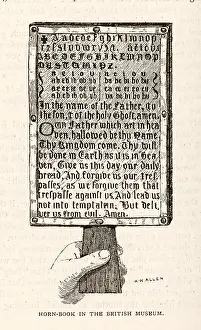 ✠ Aabcdefghijklmnop
qrzſstuvwxyz. aeiou
ABCDEFGHIJKLMNOP
QRSTUWXYZ.
a e i o u a e i o u
ab eb ib ob ub ba be bi bo bu
ac ec ic oc uc ca ce ci co cu
ad ed id od ud da de di do du
In the name of the Father, &
the ſon, & of the holy Ghoſt. amen.
Our Father which art in hea
ven, hallowed be thy Name.
Thy Kingdom come. Thy will
be done in Earth as it is in hea
ven, Give us this day our daily
bread, And forgive us our treſ
paſſes, as we forgive them that
treſpaſſe againſt us, And lead us
not into temptation; But deli
ver us from evil. Amen.
A.H.ALLEN
HORN-BOOK IN THE BRITISH MUSEUM.